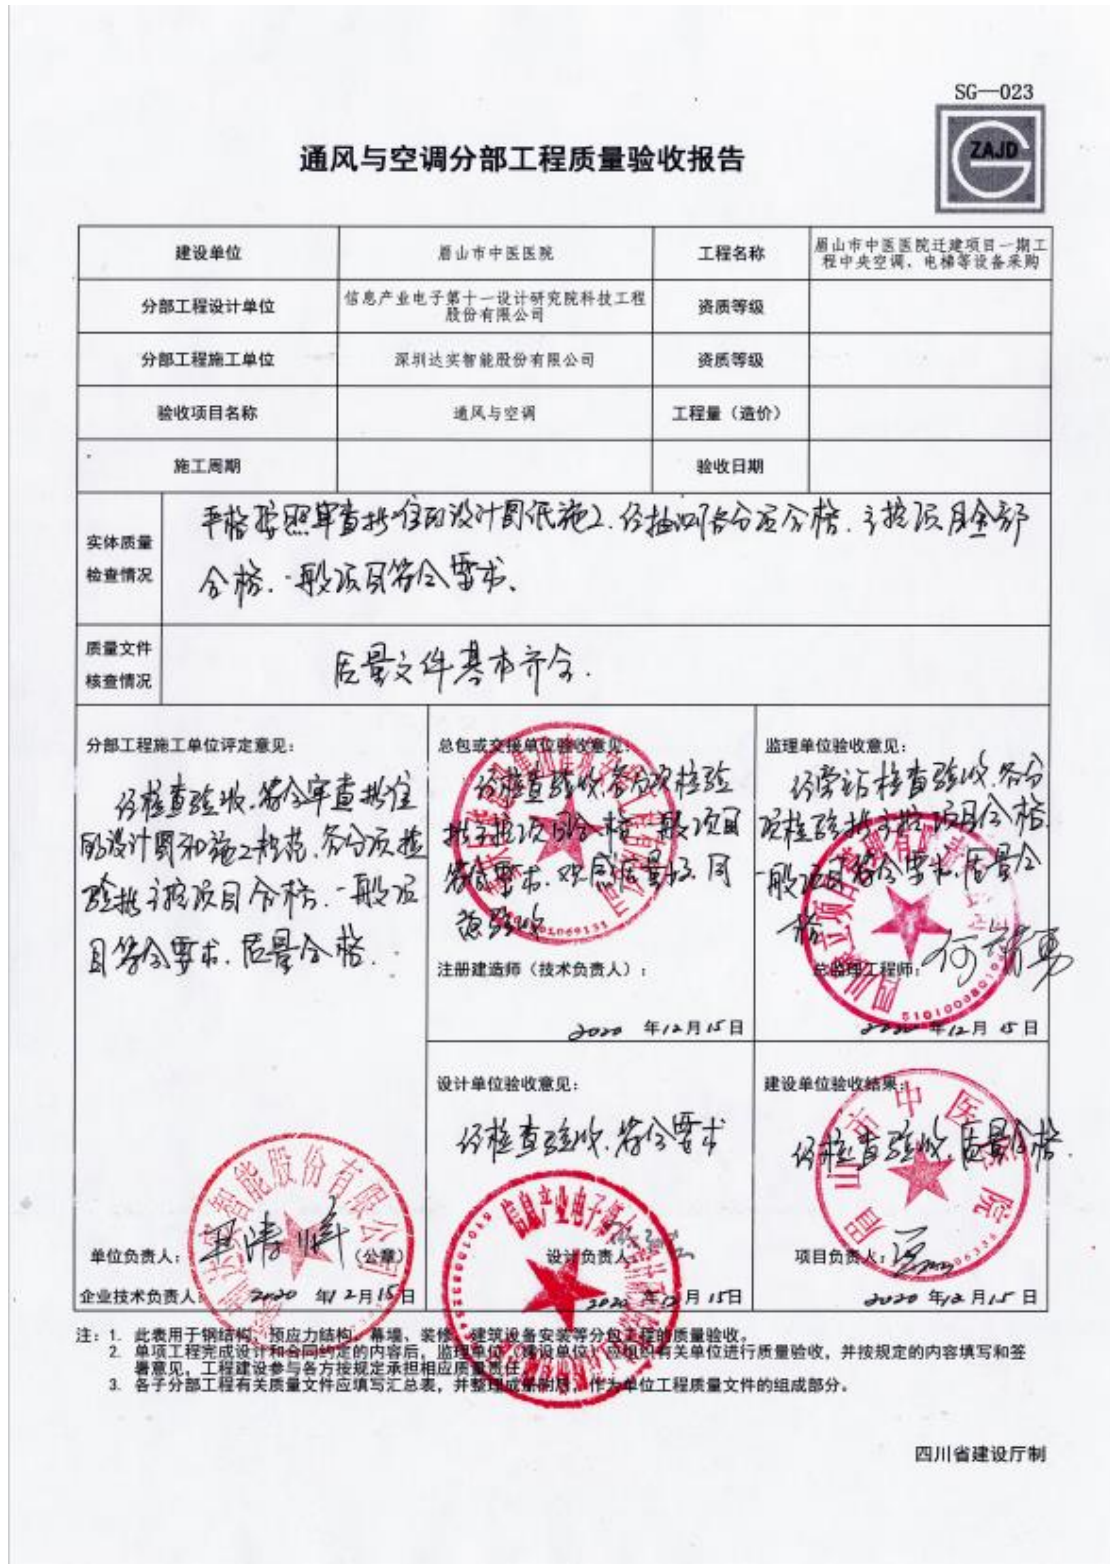 SG—023
ZAJD
通风与空调分部工程质量验收报告
建设单位 眉山市中医医院 工程名称 眉山市中医医院迁建项目一期工
程中央空调、电梯等设备采购
分部工程设计单位 信息产业电子第十一设计研究院科技工程
股份有限公司 资质等级
分部工程施工单位 深圳达实智能股份有限公司 资质等级
验收项目名称 通风与空调 工程量（造价）
施工周期 验收日期
实体质量
检查情况
严格按照审查批准的设计图纸施工.经抽测各分项合格.主控项目全部
合格.一般项目符合要求、
质量文件
核查情况
质量文件基本齐全.
分部工程施工单位评定意见：
经检查验收.符合审查批准
的设计图和施工规范.各分项检
验批主控项目合格.一般项
目符合要求.质量合格.
单位负责人： （公章）
企业技术负责人： 2020 年12月15日
总包或交接单位验收意见：
经检查验收.各分项检验
批主控项目合格.一般项目
符合要求.观感质量好.同
意验收
注册建造师（技术负责人）：
2020 年12月15日
监理单位验收意见：
经旁站检查验收.各分
项检验批主控项目合格.
一般项目符合要求.质量合
格.
总监理工程师：
2020 年12月15日
设计单位验收意见：
经检查验收.符合要求
设计负责人：
2020 年12月15日
建设单位验收结果：
经检查验收.质量合格.
项目负责人：
2020 年12月15日
眉山市中医医院
注：1. 此表用于钢结构、预应力结构、幕墙、装修、建筑设备安装等分包工程的质量验收。
2. 单项工程完成设计和合同约定的内容后，监理单位（建设单位）应组织有关单位进行质量验收，并按规定的内容填写和签
署意见，工程建设参与各方按规定承担相应质量责任。
3. 各子分部工程有关质量文件应填写汇总表，并整理成册附后，作为单位工程质量文件的组成部分。
四川省建设厅制